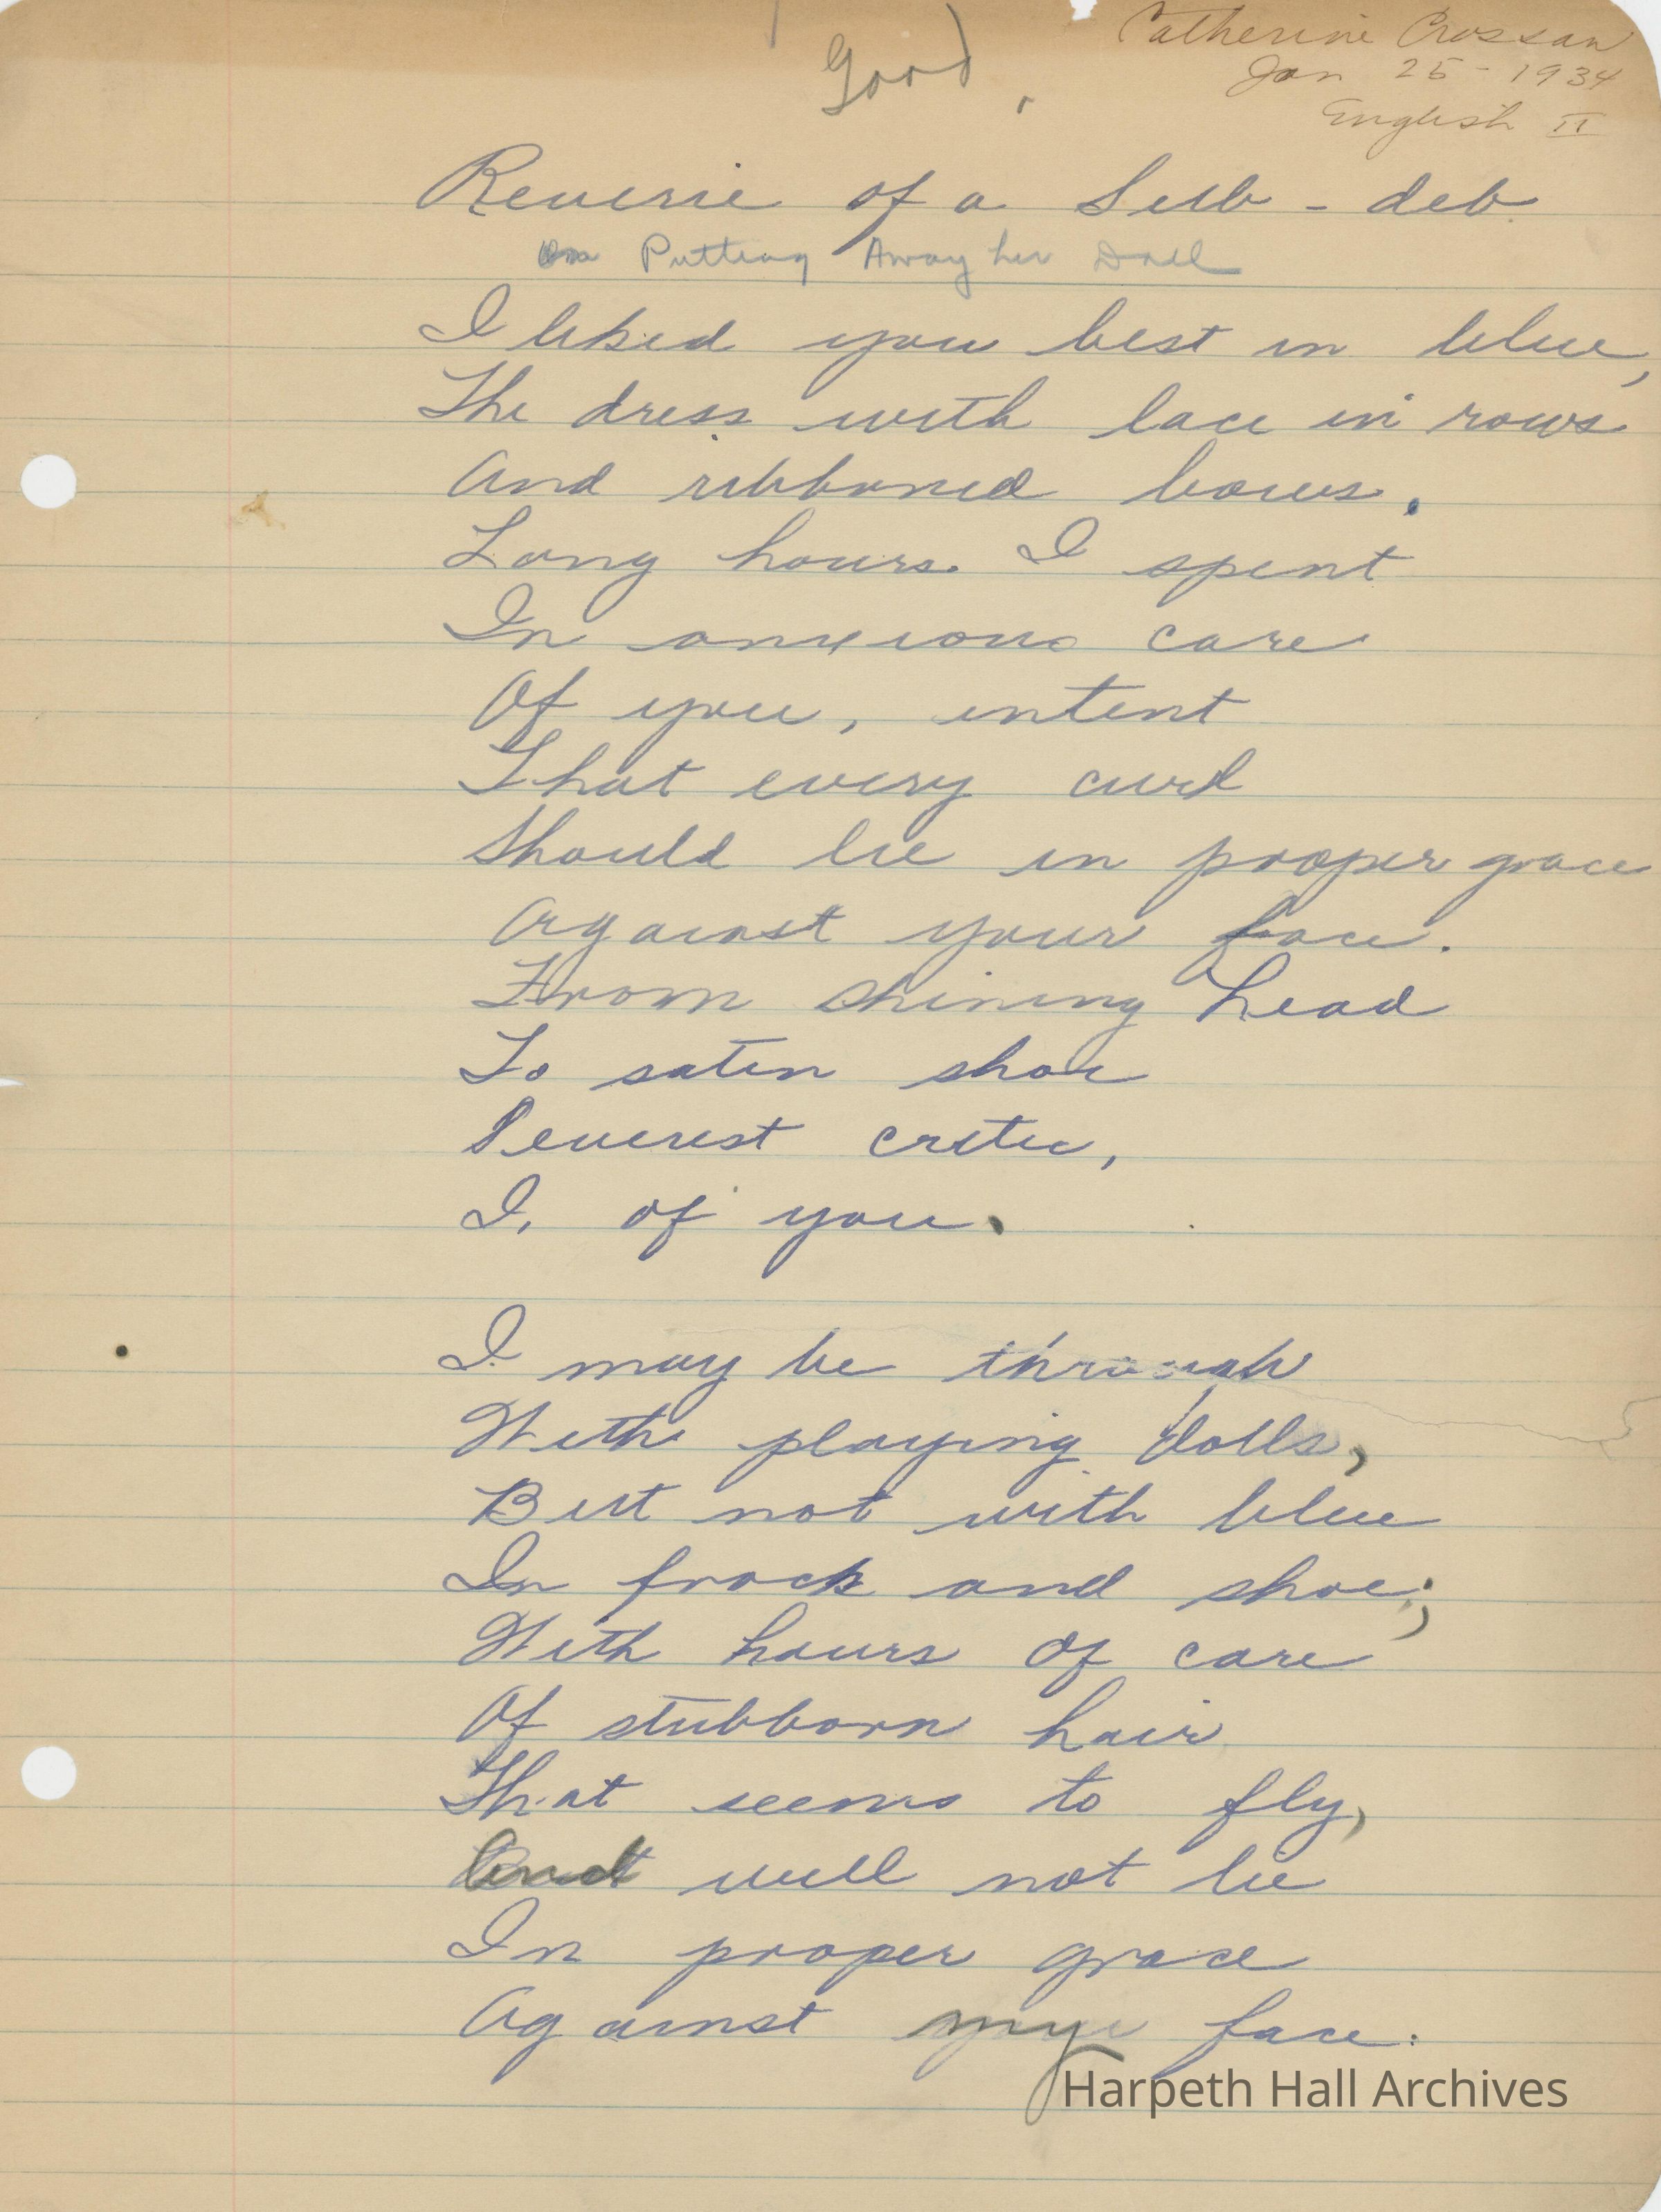 Good.
Catherine Crossan
Jan 25 - 1934
English II
Reverie of a Sub - deb
On Putting Away her Doll
I liked you best in blue,
The dress with lace in rows
And ribboned bows.
Long hours I spent
In anxious care
Of you, intent
That every curl
Should lie in proper grace
Against your face.
From shining head
To satin shoe
Severest critic,
I, of you.
I may be through
With playing dolls,
But not with blue
In frock and shoe;
With hours of care
Of stubborn hair
That seems to fly,
And will not lie
In proper grace
Against my face.
Harpeth Hall Archives